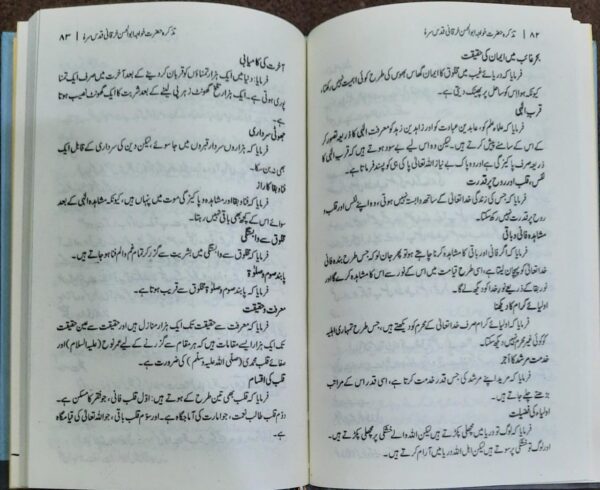 ۸۲ | تذکرہ حضرت خواجہ ابوالحسن خرقانی قدس سرہٗ
بحرِ غائب میں ایمان کی حقیقت
فرمایا کہ دریائے غیب میں مخلوق کا ایمان گھاس پھوس کی طرح کوئی اہمیت نہیں رکھتا
کہ ہوا اس کو ساحل پر پھینک دیتی ہے۔
قربِ الٰہی
فرمایا کہ علماء علم کو، عابدین عبادت کو اور زاہدین زہد کو معرفت الٰہی کا ذریعہ تصور کر
کے اس کے سامنے پیش کرتے ہیں۔ لیکن وہ اس لیے بے سود ہوتے ہیں کہ قرب الٰہی کا
ذریعہ صرف پاکیزگی ہے اور وہ پاک بے نیاز اللہ تعالیٰ پاکی ہی کو پسند فرماتا ہے۔
نفس، قلب اور روح پر قدرت
فرمایا کہ جس کی زندگی خدا تعالیٰ کے ساتھ وابستہ نہیں ہوتی، وہ اپنے نفس اور قلب و
روح پر قدرت نہیں رکھ سکتا۔
مشاہدہ فانی و باقی
فرمایا کہ اگر فانی اور باقی کا مشاہدہ کرنا چاہتے ہو تو پھر جان لو کہ جس طرح بندہ فانی
خدا تعالیٰ کو پہچان لیتا ہے، اسی طرح قیامت میں اس کے نور سے اس کا مشاہدہ کرے گا اور
نورِ بقا کے ذریعے نورِ خدا کو دیکھ لے گا۔
اولیائے کرام کا دیکھنا
فرمایا کہ اولیائے کرام صرف خدا تعالیٰ کے محرم کو دیکھتے ہیں، جس طرح تمہاری اہلیہ
کو کوئی غیر محرم نہیں دیکھ سکتا۔
خدمت مرشد کا اجر
فرمایا کہ مرید اپنے مرشد کی جس قدر خدمت کرتا ہے، اسی قدر اس کے مراتب
بڑھتے چلے جاتے ہیں۔
اولیاء کی فضیلت
فرمایا کہ لوگ تو دریا میں مچھلی پکڑتے ہیں لیکن اللہ والے خشکی پر مچھلی پکڑتے ہیں۔
اور لوگ تو خشکی پر سوتے ہیں لیکن اہل اللہ دریا میں آرام کرتے ہیں۔
تذکرہ حضرت خواجہ ابوالحسن خرقانی قدس سرہٗ | ۸۳
آخرت کی کامیابی
فرمایا کہ دنیا میں ایک ہزار تمناؤں کو قربان کر دینے کے بعد آخرت میں صرف ایک تمنا
پوری ہوتی ہے۔ ایک ہزار تلخ گھونٹ زہر پی لینے کے بعد شربت کا ایک گھونٹ نصیب ہوتا
ہے۔
جھوٹی سرداری
فرمایا کہ ہزاروں سردار قبروں میں جا سوئے، لیکن دین کی سرداری کے قابل ایک
بھی نہ بن سکا۔
فنا و بقا کا راز
فرمایا کہ فنا و بقا اور مشاہدہ و پاکیزگی موت میں پنہاں ہیں، کیونکہ مشاہدہ الٰہی کے بعد
سوائے اس کے کچھ بھی باقی نہیں رہتا۔
مخلوق سے وابستگی
فرمایا کہ مخلوق سے وابستگی میں بشریت سے گزر کر تمام غم و الم فنا ہو جاتے ہیں۔
پابند صوم و صلوٰۃ
فرمایا کہ پابند صوم و صلوٰۃ مخلوق سے قریب ہوتا ہے۔
معرفت و حقیقت
فرمایا کہ معرفت سے حقیقت تک ایک ہزار منازل ہیں اور حقیقت سے عین حقیقت
تک ایک ہزار ایسے مقامات ہیں کہ ہر مقام سے گزرنے کے لیے عمرِ نوح (علیہ السلام) اور
صفائے قلب محمدی (صلی اللہ علیہ وسلم) کی ضرورت ہے۔
قلب کی اقسام
فرمایا کہ قلب بھی تین طرح کے ہوتے ہیں۔ اوّل قلب فانی، جو فقر کا مسکن ہے۔
دوّم قلب طالب نعمت، جو امارت کی آماجگاہ ہے۔ اور سوّم قلب باقی، جو اللہ تعالیٰ کی قیام گاہ
ہے۔